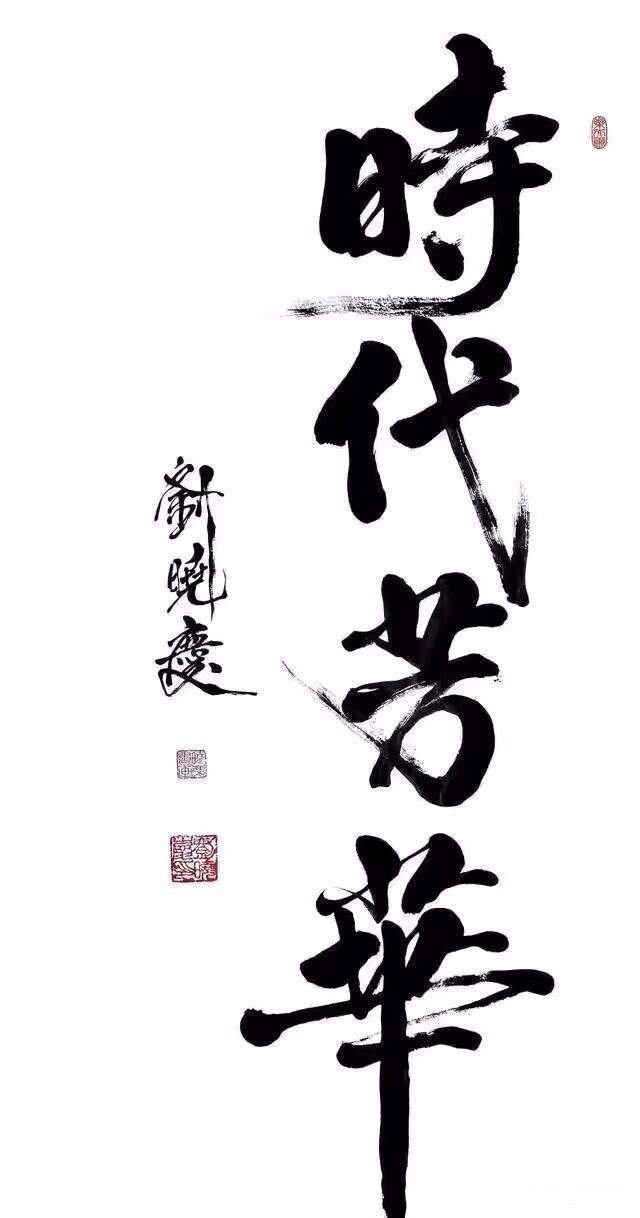 時代芳華
劉曉慶